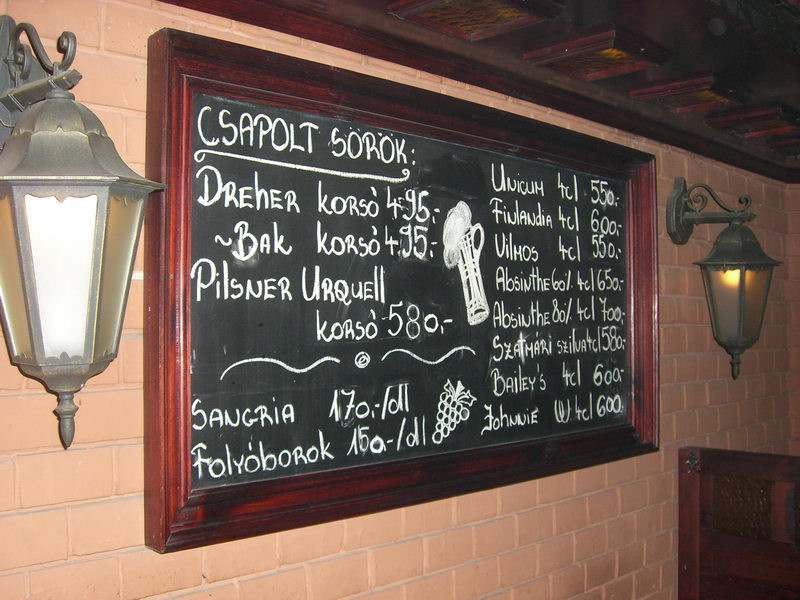 CSAPOLT SÖRÖK:
DREHER KORSÓ 495,-
~BAK KORSÓ 495,-
PILSNER URQUELL
KORSÓ 580,-
SANGRIA 170,-/dl
FOLYÓBOROK 150,-/dl
UNICUM 4cl 550,-
FINLANDIA 4cl 600,-
VILMOS 4cl 550,-
ABSINTHE 60% 4cl 650,-
ABSINTHE 80% 4cl 700,-
SZATMÁRI SZILVA 4cl 580,-
BAILEY'S 4cl 600,-
JOHNNIE W 4cl 600,-